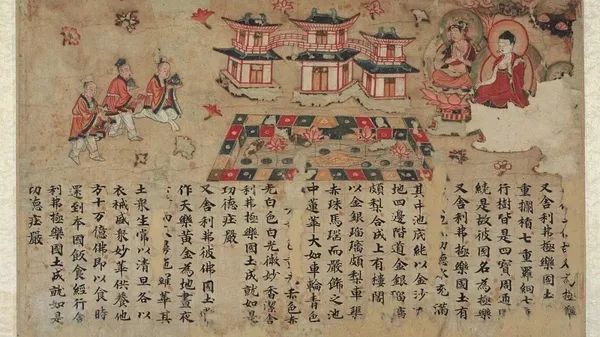 為極
又舍利弗極樂國土
重欄楯七重羅網七
行樹皆是四寶周通
繞是故彼國名為極樂
又舍利弗極樂國土有
功德水充滿
其中池底純以金沙
地四邊階道金銀瑠璃
頗梨合成上有樓閣
以金銀瑠璃頗梨車𤦲
赤珠馬瑙而嚴飾之池
中蓮華大如車輪青色
赤色赤
光白色白光微妙香潔舍
利弗極樂國土成就如是
功德莊嚴
又舍利弗彼佛國土
作天樂黃金為地晝夜
雨 羅華其
土衆生常以清旦各以
衣裓盛衆妙華供養他
方十万億佛即以食時
還到本國飯食經行舍
利弗極樂國土成就如是
功德莊嚴